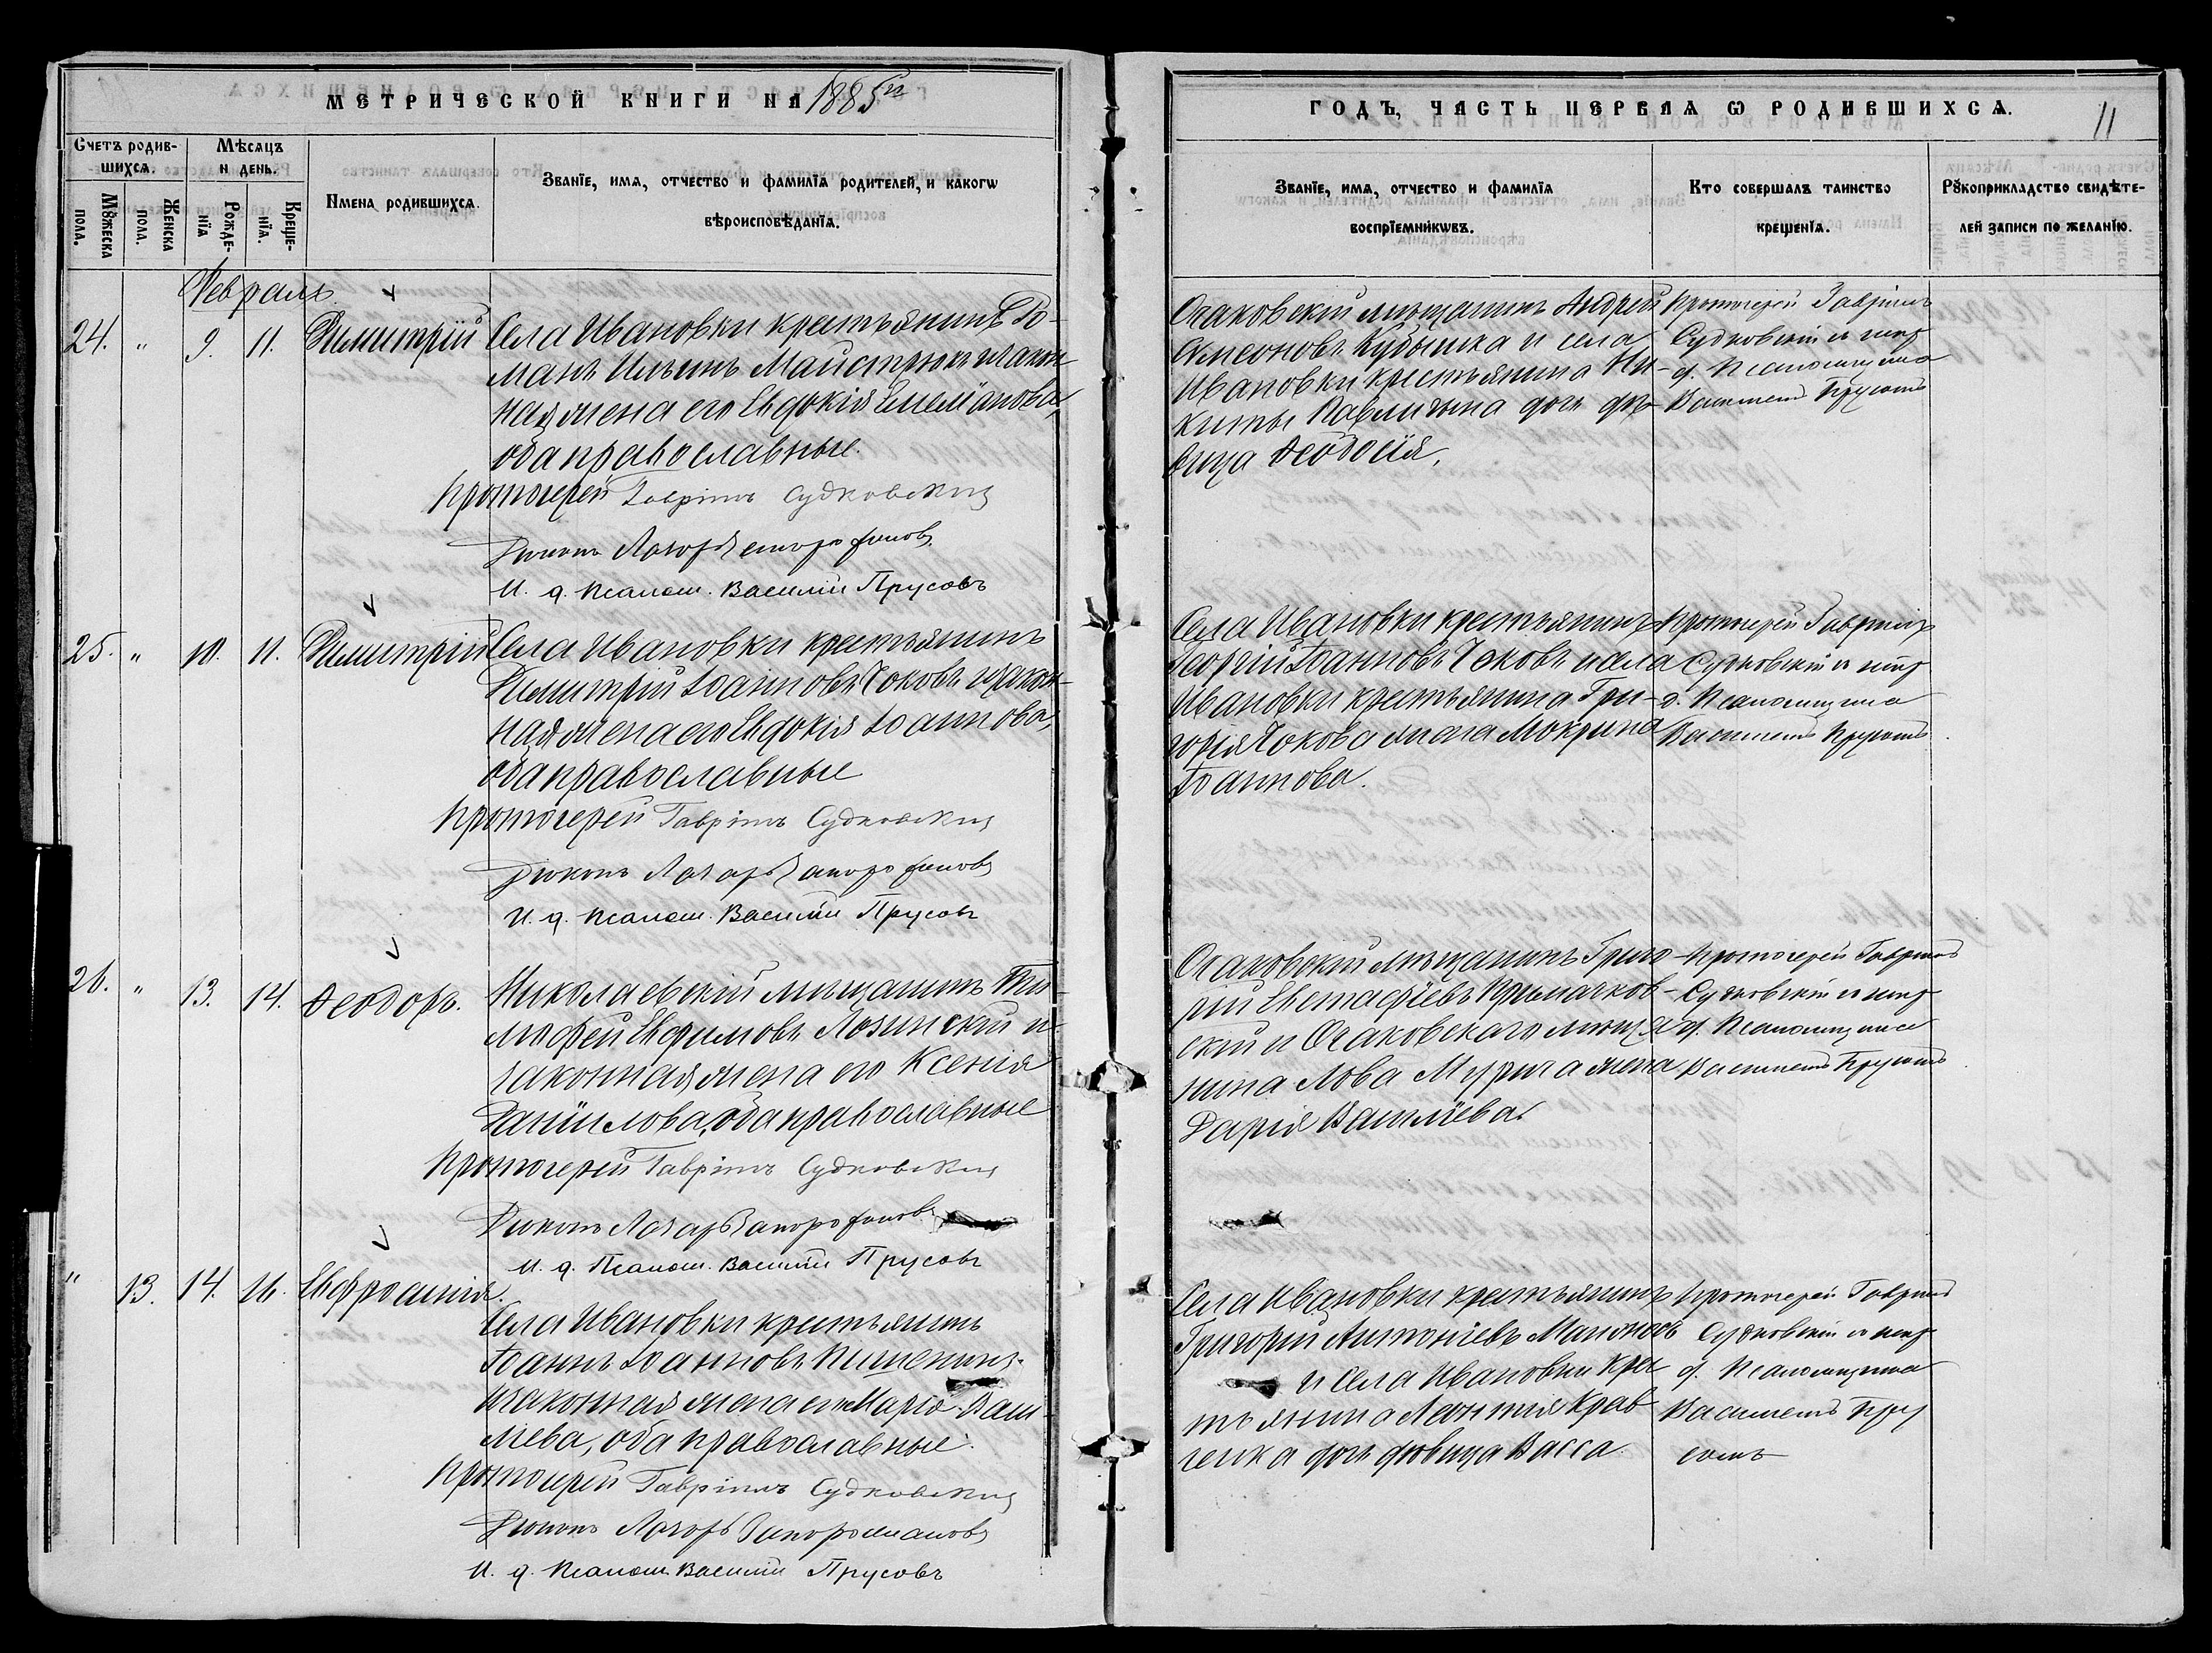 МЕТРИЧЕСКОЙ КНИГИ НА 1885й
Счетъ родив-
шихся.
Мѣсяцъ
и день.
Мꙋжеска
пола.
Женска
пола.
Рожде-
нїя
Креще-
нїя.
Имена родившихся.
Званїе, имя, отчество и фамилїя родителей, и какогѡ
вѣроисповѣданїя.
Февраль
24. " 9. 11. Димитрій
Села Ивановки крестьянинъ Ро-
манъ Ильинъ Майстрюкъ и закон
ная жена его Евдокія Емеліанова,
оба православные.
Протоіерей Гавріилъ Судковскій
Діаконъ Лазарь
И. д. Псалом. Василій Прусовъ
25. " 10. 11. Димитрій
Села Ивановки крестьянинъ
Димитрій Іоанновъ Чоковъ и закон-
ная жена его Евдокія Іоаннова,
оба православные
Протоіерей Гавріилъ Судковскій
Діаконъ Лазарь
И. д. Псалом. Василій Прусовъ
26. " 13. 14. Ѳеодоръ.
Николаевскій мѣщанинъ Ти-
моѳей Евфимовъ Лозинскій и
законная жена его Ксенія
Даніилова, оба православные
Протоіерей Гавріилъ Судковскій
Діаконъ Лазарь
И. д. Псалом. Василій Прусовъ
" 13. 14. 16. Евфросинія.
Села Ивановки крестьянинъ
Іоаннъ Іоанновъ
законная жена его Марія Васи-
лiева, оба православные.
Протоіерей Гавріилъ Судковскій
Діаконъ Лазарь
И. д. Псалом. Василій Прусовъ
ГОДЪ, ЧАСТЬ ПЕРВАЯ Ѡ РОДИВШИХСЯ.
11
Званїе, имя, отчество и фамилїя
воспрїемникѡвъ.
Кто совершалъ таинство
крещенїя.
Рꙋкоприкладство свидѣте-
лей записи по желанїю.
Очаковскій мѣщанинъ Андрей
Симеоновъ Кубышка и села
Ивановки крестьянина Ни-
киты Павличина дочь дѣ-
вица Ѳеодосія.
Протоіерей Гавріилъ
Судковскій и испр
д. Псаломщика
Василiемъ Прусовъ
Села Ивановки крестьянинъ
Георгій Іоанновъ Чоковъ и села
Ивановки крестьянина Гри-
горія Чокова жена Мокрина
Іоаннова.
Протоіерей Гавріилъ
Судковскій и испр
д. Псаломщика
Василiемъ Прусовъ
Очаковскій мѣщанинъ Григо-
рій Евстафіевъ Кримачков-
скій и Очаковскаго мѣща-
нина Лова Мурига жена
Дарія Василіева.
Протоіерей Гавріилъ
Судковскій и испр
д. Псаломщика
Василiемъ Прусовъ
Села Ивановки крестьянинъ
Григорій Антоніевъ
и Села Ивановки кре
стьянина Леонтія Крав
ченка дочь дѣвица Васса
Протоіерей Гавріилъ
Судковскій и испр
д. Псаломщика
Василiемъ Пру
совъ